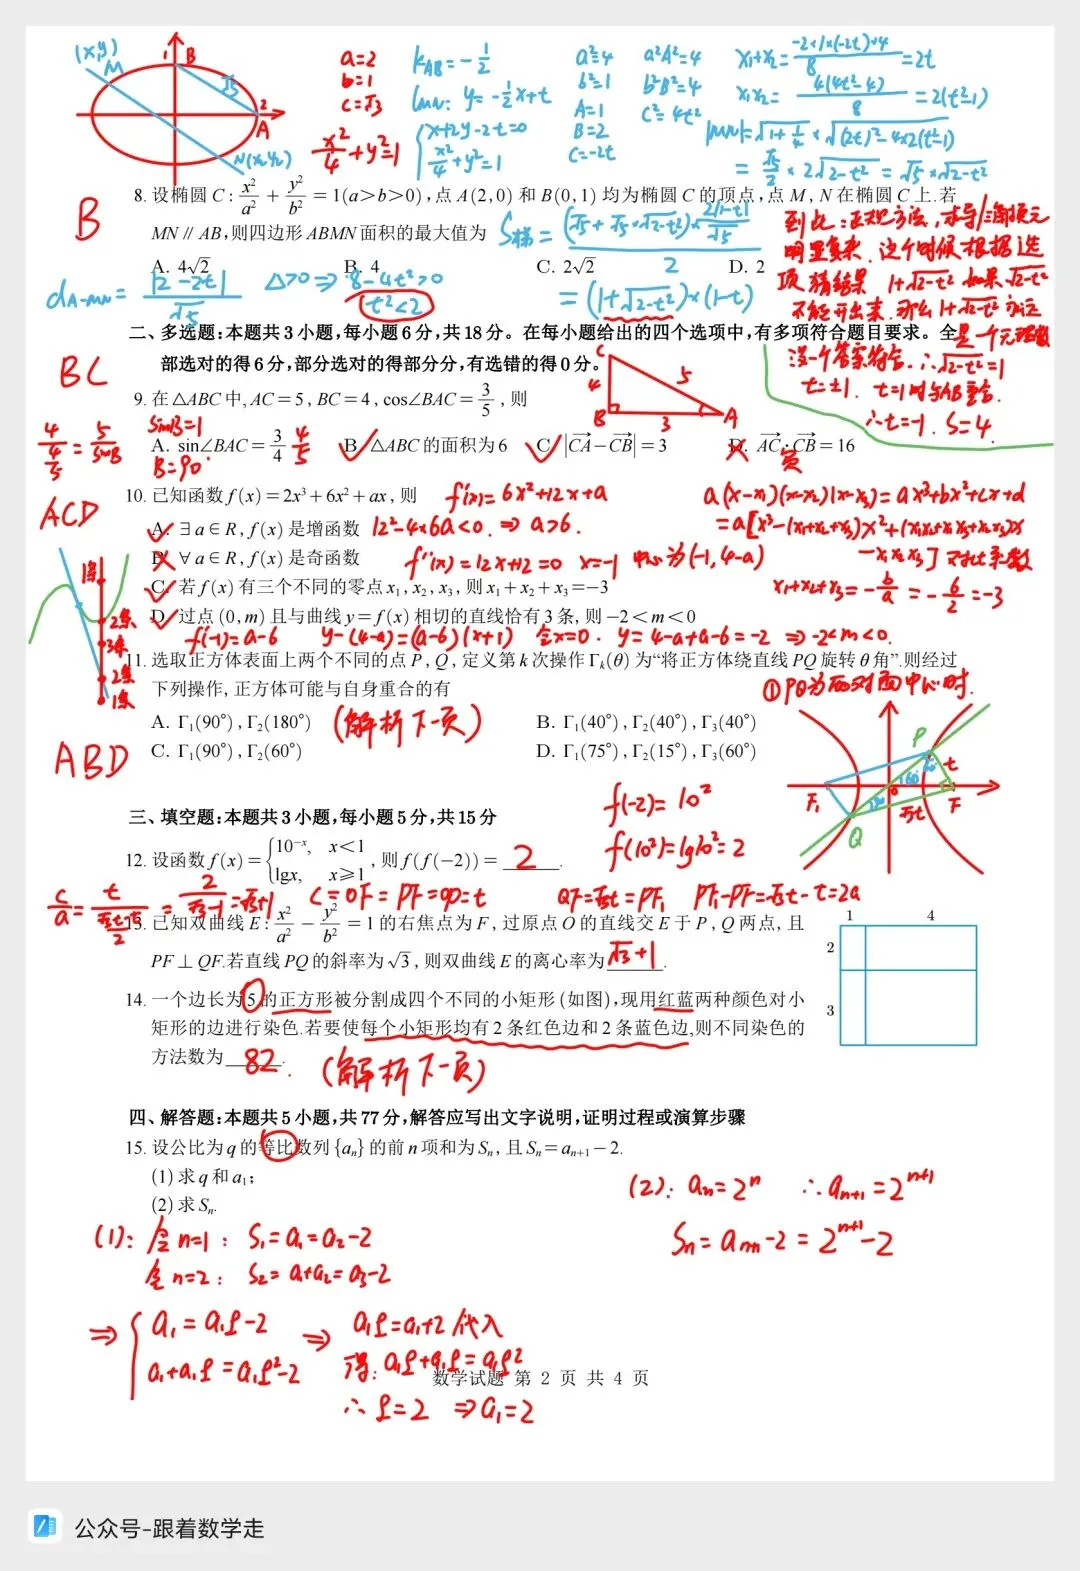 (x,y)
M
B
√5
2
A
N(x₂,y₂)
a=2
b=1
c=√3
x²/4+y²=1
k_AB=-1/2
l_MN: y=-1/2x+t
{x+2y-2t=0
x²/4+y²=1
a²=4
b²=1
A=1
B=2
C=-2t
a²A²=4
b²B²=4
C²=4t²
x₁+x₂=-2×1×(-2t)×4/8=2t
x₁x₂=4(4t²-4)/8=2(t²-1)
|MN|=√(1+1/4)×√((2t)²-4×2(t²-1))
=√5/2×2√(2-t²)=√5×√(2-t²)
8. 设椭圆 C: x²/a² + y²/b² = 1(a>b>0),点 A(2,0) 和 B(0,1) 均为椭圆 C 的顶点,点 M, N 在椭圆 C 上.若
MN∥AB,则四边形 ABMN 面积的最大值为
B
A. 4√2 B. 4 C. 2√2 D. 2
S梯=(√5+√5×√(2-t²))×2|1-t|/√5 / 2
=(1+√(2-t²))×(1-t)
d_A-MN=|2-2t|/√5
Δ>0⇒8-4t²>0
t²<2
到此:正规方法,求导/三角换元
明显复杂.这个时候根据选
项猜结果 1+√(2-t²) 如果√(2-t²)
不能开出来.那么1+√(2-t²)永远
是一个无理数
没一个答案符合.∴√(2-t²)=1
t=±1. t=1时与AB重合.
∴t=-1. S=4.
二、多选题:本题共3小题,每小题6分,共18分。在每小题给出的四个选项中,有多项符合题目要求。全
部选对的得6分,部分选对的得部分分,有选错的得0分。
BC
9. 在 △ABC 中, AC=5, BC=4, cos∠BAC=3/5, 则
C
4
5
B
3
A
4/(4/5)=5/sinB
sinB=1
B=90°
A. sin∠BAC=3/4 B. △ABC 的面积为 6 C. |CA-CB|=3 D. AC·CB=16
4/5
负
10. 已知函数 f(x)=2x³+6x²+ax, 则
f'(x)=6x²+12x+a
a(x-x₁)(x-x₂)(x-x₃)=ax³+bx²+cx+d
ACD
A. ∃a∈R, f(x) 是增函数
12²-4×6a<0.⇒a>6.
=a[x³-(x₁+x₂+x₃)x²+(x₁x₂+x₁x₃+x₂x₃)x
B. ∀a∈R, f(x) 是奇函数
f''(x)=12x+12=0 x=-1 中心为(-1,4-a)
-x₁x₂x₃] 对比系数
C. 若 f(x) 有三个不同的零点 x₁, x₂, x₃, 则 x₁+x₂+x₃=-3
x₁+x₂+x₃=-b/a=-6/2=-3
D. 过点 (0, m) 且与曲线 y=f(x) 相切的直线恰有 3 条, 则 -2<m<0
f'(-1)=a-6 y-(4-a)=(a-6)(x+1) 令x=0. y=4-a+a-6=-2 ⇒-2<m<0.
1条
2条
3条
2条
1条
11. 选取正方体表面上两个不同的点 P, Q, 定义第 k 次操作 Γₖ(θ) 为“将正方体绕直线 PQ 旋转 θ 角”.则经过
下列操作, 正方体可能与自身重合的有
①PQ为两对面中心时.
A. Γ₁(90°), Γ₂(180°) B. Γ₁(40°), Γ₂(40°), Γ₃(40°)
(解析下一页)
C. Γ₁(90°), Γ₂(60°) D. Γ₁(75°), Γ₂(15°), Γ₃(60°)
ABD
P
t
60°
60°
F₁
0
F
√3t
Q
三、填空题:本题共3小题,每小题5分,共15分
f(-2)=10²
12. 设函数 f(x)={10⁻ˣ, x<1
lgx, x⩾1, 则 f(f(-2))= 2 .
f(10²)=lg10²=2
c/a=t/((√3t-t)/2)=2/(√3-1)=√3+1
c=OF=PF=OP=t
QF=√3t=PF₁ PF₁-PF=√3t-t=2a
13. 已知双曲线 E: x²/a² - y²/b² = 1 的右焦点为 F, 过原点 O 的直线交 E 于 P, Q 两点, 且
PF⊥QF.若直线 PQ 的斜率为 √3, 则双曲线 E 的离心率为 √3+1 .
1 4
2
3
14. 一个边长为 5 的正方形被分割成四个不同的小矩形 (如图),现用红蓝两种颜色对小
矩形的边进行染色.若要使每个小矩形均有 2 条红色边和 2 条蓝色边,则不同染色的
方法数为 82 .
(解析下一页)
四、解答题:本题共5小题,共77分,解答应写出文字说明,证明过程或演算步骤
15. 设公比为 q 的等比数列 {aₙ} 的前 n 项和为 Sₙ, 且 Sₙ=aₙ₊₁-2.
(1) 求 q 和 a₁;
(2) 求 Sₙ.
(2): aₙ=2ⁿ ∴aₙ₊₁=2ⁿ⁺¹
Sₙ=aₙ₊₁-2=2ⁿ⁺¹-2
(1): 令n=1: S₁=a₁=a₂-2
令n=2: S₂=a₁+a₂=a₃-2
⇒{a₁=a₁q-2
a₁+a₁q=a₁q²-2
⇒ a₁q=a₁+2代入
得:a₁q+a₁q=a₁q²
∴q=2 ⇒a₁=2
数学试题 第 2 页 共 4 页
公众号-跟着数学走